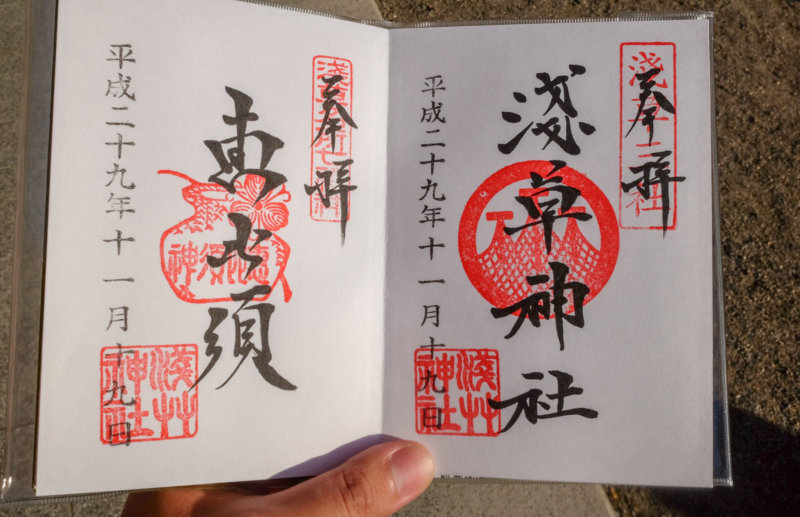 奉拝
淺草三社
淺草神社
平成二十九年十一月十九日
淺草神社
奉拝
恵比須
平成二十九年十一月十九日
淺草神社